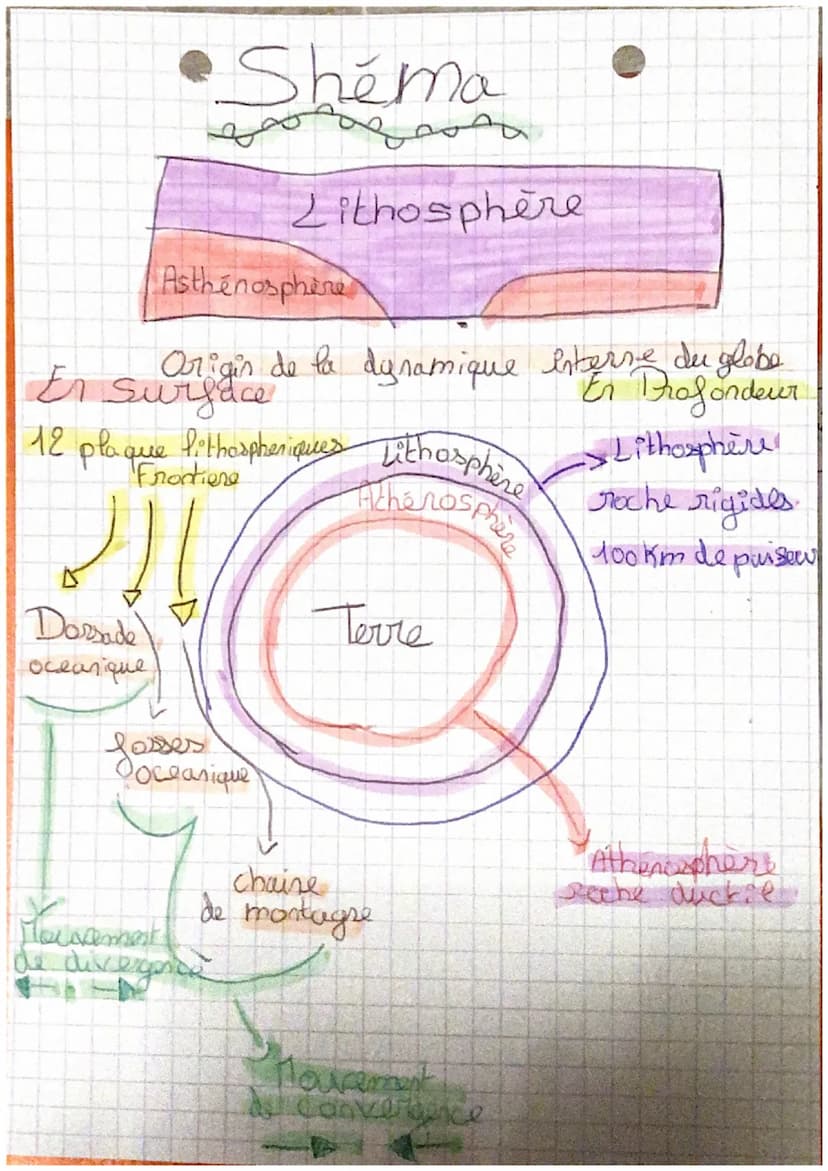 Shéma
Lithosphère
Asthénosphère
Origin de la dynamique interne du globe
En surface
En Profondeur
12 plaque lithospheriques
Frontiere
Lithosphère
Athénosphère
Terre
Lithosphère
roche rigides
100 Km de paisseu
Dorsade
oceanique
fosses
oceanique
chaine
de montagne
Athénosphère
roche ductile
Mouvement
de divergence
Mouvement
de convergence